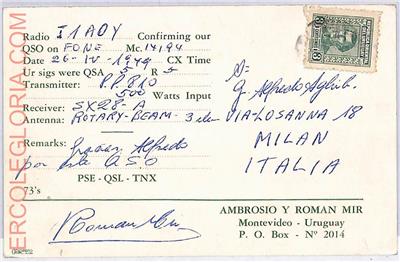 Radio I1AOY Confirming our
QSO on FONE Mc. 14,194
Date 26-IV-1949 CX Time
Ur sigs were QSA 5 R 5
Transmitter: P.P. 810
500 Watts Input
Receiver: SX28-A
Antenna: ROTARY-BEAM-3 ele
Remarks: gracias Alfredo
por este QSO
PSE - QSL - TNX
73's
A:
Alfredo
VIA-LOSANNA 18
MILAN
ITALIA
AMBROSIO Y ROMAN MIR
Montevideo - Uruguay
P. O. Box - Nº 2014
ERCOLEGLORIA.COM